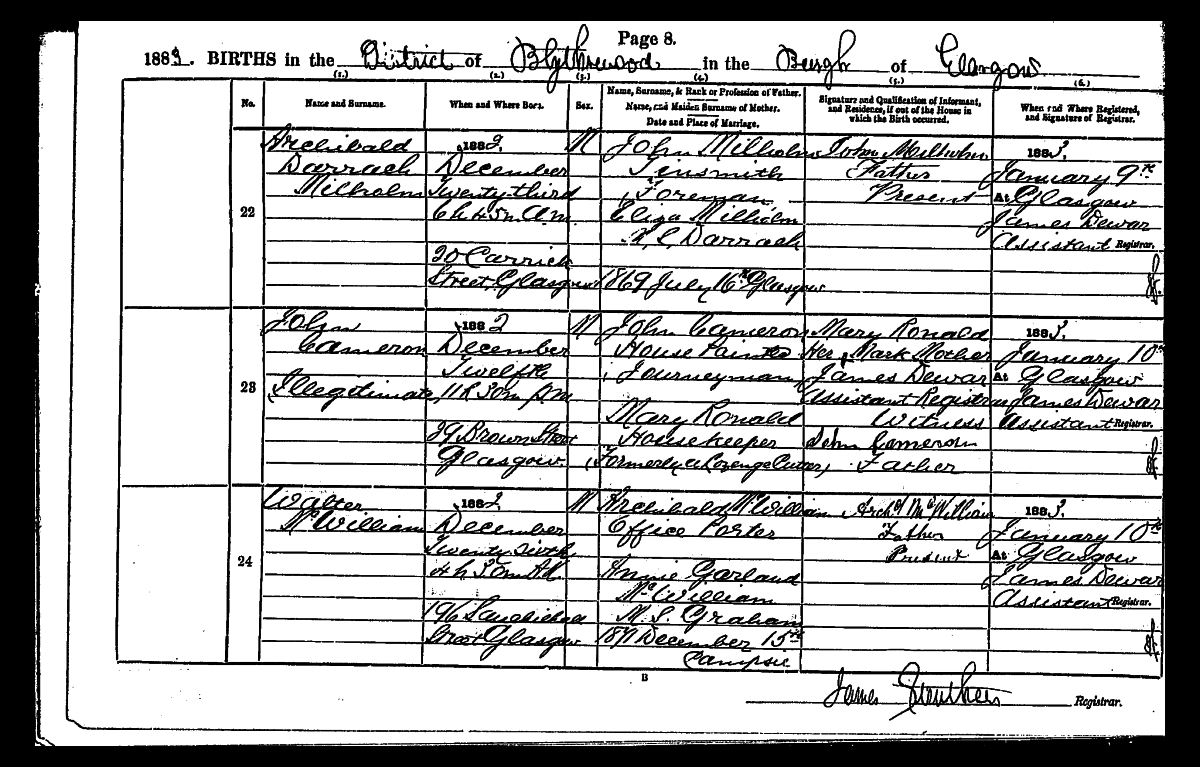 Page 8.
1883. BIRTHS in the District of Blythswood in the Burgh of Glasgow
(1.) (2.) (3.) (4.) (5.) (6.)
No.
Name and Surname.
When and Where Born.
Sex.
Name, Surname, & Rank or Profession of Father.
Name, and Maiden Surname of Mother.
Date and Place of Marriage.
Signature and Qualification of Informant,
and Residence, if out of the House in
which the Birth occurred.
When and Where Registered,
and Signature of Registrar.
22
Archibald
Darrach
Milholm
1882,
December
Twenty third
6h 45m AM
20 Carrick
Street, Glasgow
M
John Milholm
Tinsmith
(Foreman)
Eliza Milholm
M.S. Darrach
1869 July 16th Glasgow
John Milholm
Father
Present
1883,
January 9th
At Glasgow
James Dewar
Assistant Registrar.
23
John
Cameron
(Illegitimate)
1882
December
Twelfth
11h 30m PM
29 Brown Street
Glasgow.
M
John Cameron
House Painter
(Journeyman)
Mary Ronald
Housekeeper
(Formerly a Lozenge Cutter)
Mary Ronald
Her x Mark Mother
James Dewar
Assistant Registrar
Witness
John Cameron
Father
1883,
January 10th
At Glasgow
James Dewar
Assistant Registrar.
24
Walter
McWilliam
1882
December
Twenty sixth
4h 30m AM
196 Sauchiehall
Street Glasgow
M
Archibald McWilliam
Office Porter
Annie Garland
McWilliam
M.S. Graham
December 15th
Campsie
Archd McWilliam
Father
Present
1883.
January 10th
At Glasgow
James Dewar
Assistant Registrar.
B
James Struthers Registrar.